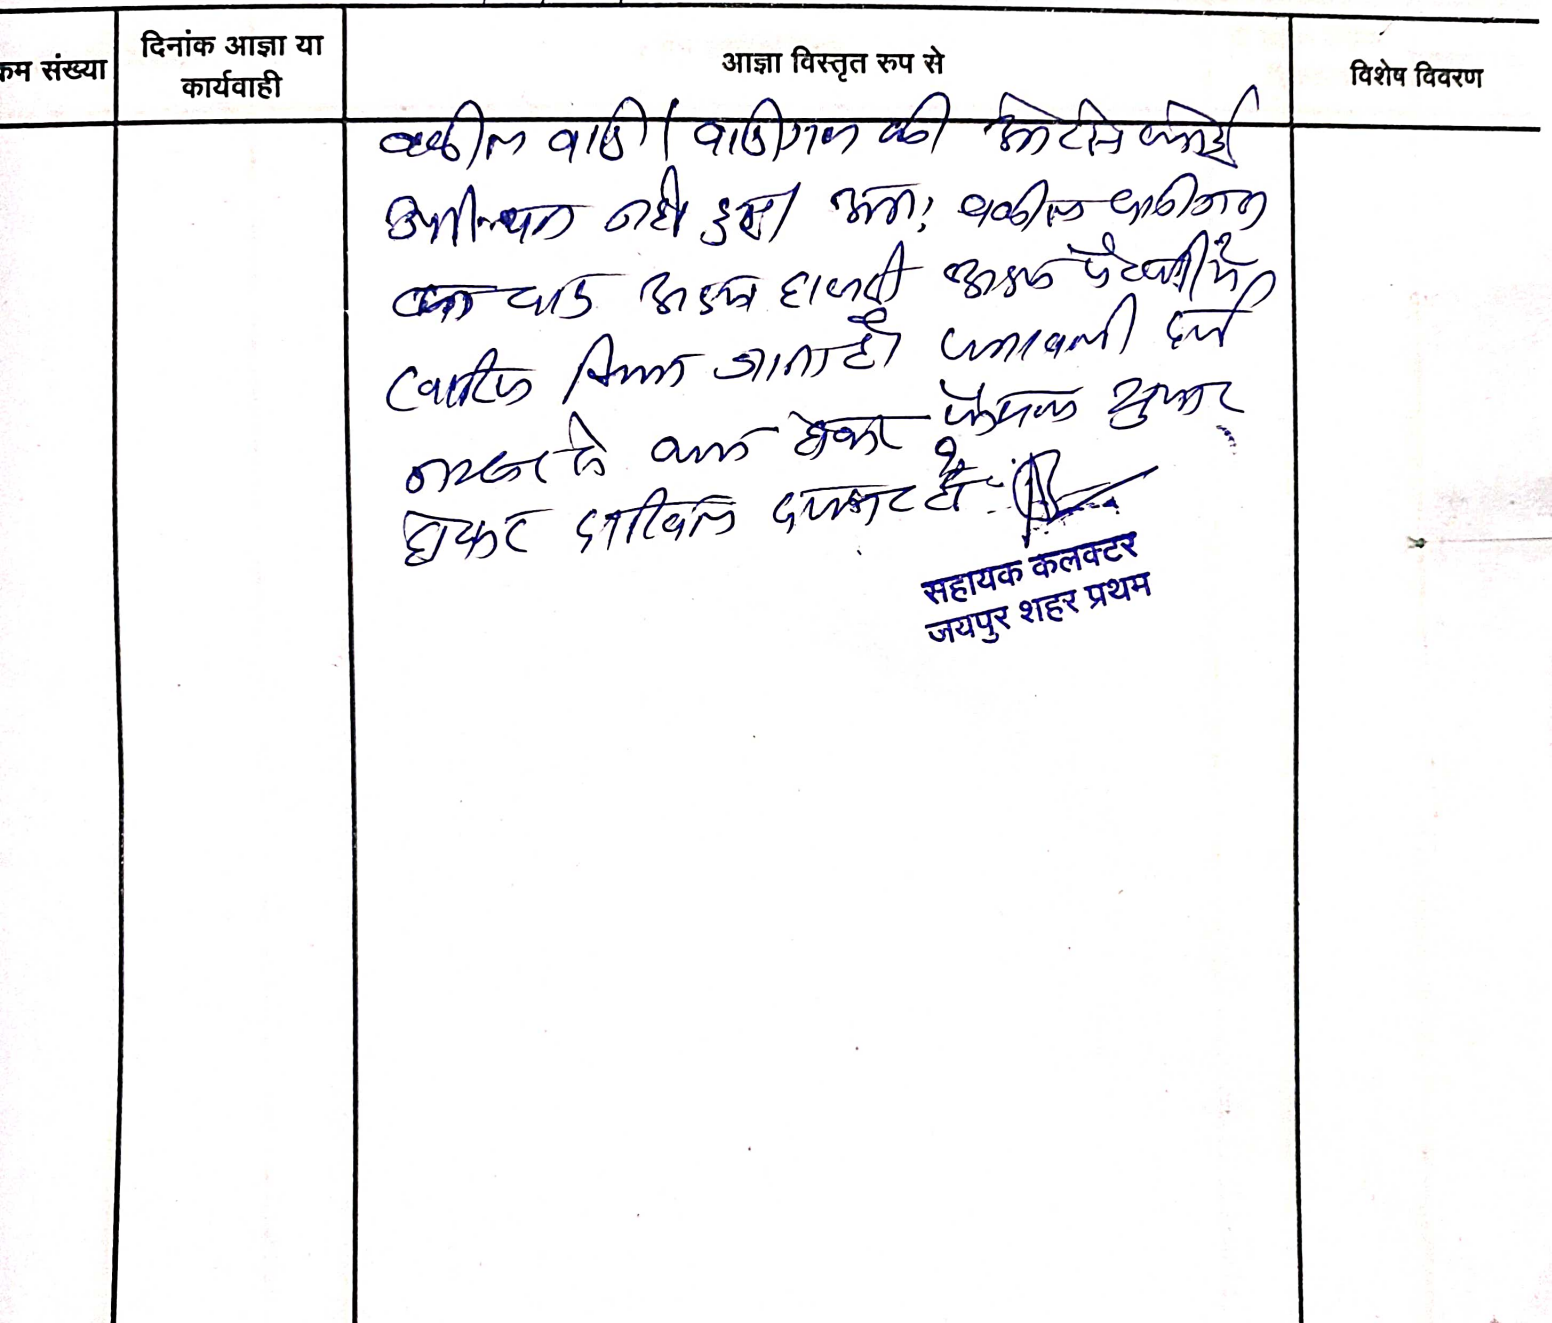 क्रम संख्या
दिनांक आज्ञा या
कार्यवाही
आज्ञा विस्तृत रुप से
विशेष विवरण
वकील वादी / वादीगण की ओर से कोई
उपस्थित नही हुआ। अतः वकील वादीगण
का वाद अदम हाजरी अदम पैरवी में
खारिज किया जाता है। पत्रावली दर्ज
नम्बर से कम होकर फैसल शुमार
होकर दाखिल दफ्तर हो।
सहायक कलक्टर
जयपुर शहर प्रथम